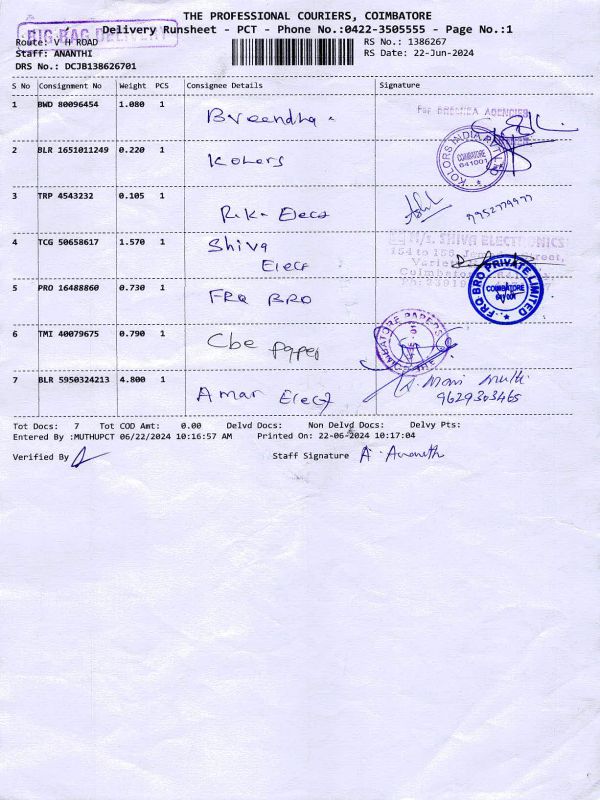 THE PROFESSIONAL COURIERS, COIMBATORE
BIG BAG DELIVERY
Delivery Runsheet - PCT - Phone No.:0422-3505555 - Page No.:1
Route: V H ROAD
RS No.: 1386267
Staff: ANANTHI
RS Date: 22-Jun-2024
DRS No.: DCJB138626701
S No Consignment No Weight PCS Consignee Details Signature
1 BWD 80096454 1.080 1 Breendha
For BREENDA AGENCIES
2 BLR 1651011249 0.220 1 Kolors
KOLORS INDIA PVT LTD
COIMBATORE
641001
3 TRP 4543232 0.105 1 Rika Elect
9952779977
4 TCG 50658617 1.570 1 Shiva
Elect
M/s. SHIVA ELECTRONICS
5 PRO 16488860 0.730 1 FRQ BRO
FRQ BRO PRIVATE LIMITED
COIMBATORE
641 001
6 TMI 40079675 0.790 1 Cbe paper
COIMBATORE PAPERS
7 BLR 5950324213 4.800 1 Amar Elect
Mani Muthu
9629303465
Tot Docs: 7 Tot COD Amt: 0.00 Delvd Docs: Non Delvd Docs: Delvy Pts:
Entered By :MUTHUPCT 06/22/2024 10:16:57 AM Printed On: 22-06-2024 10:17:04
Verified By Staff Signature A. Ananth